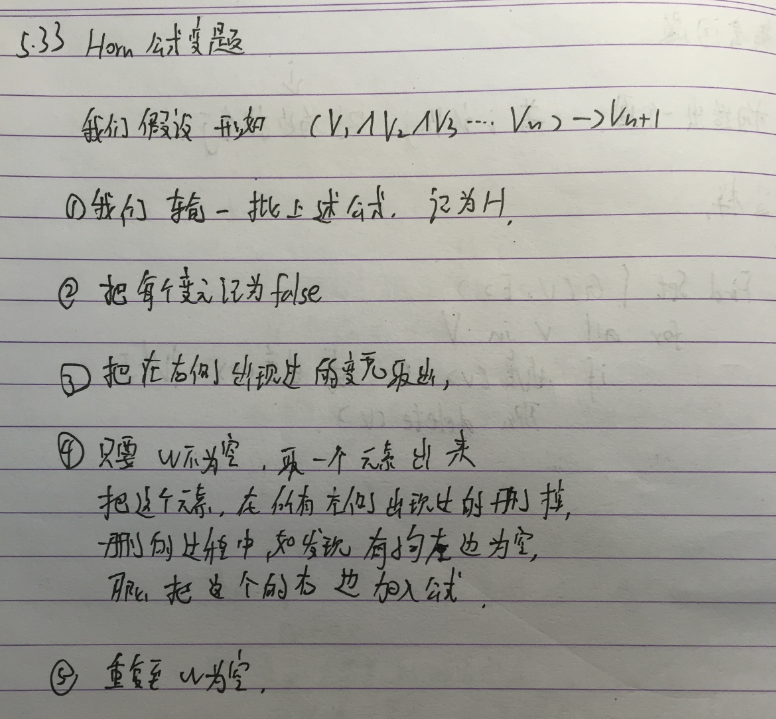 5.33 Horn 公式变题
我们假设 形如 (V1∧V2∧V3····Vn)->Vn+1
①我们 输一批上述公式. 记为H.
②把每个变元记为false
③把在右侧出现过的变元取出,
④只要 w不为空, 取一个元素出来
把这个元素, 在所有左侧出现过的删掉,
删的过程中, 如发现有 左边为空,
那么 把这个的右边加入公式.
⑤重复至 w为空.